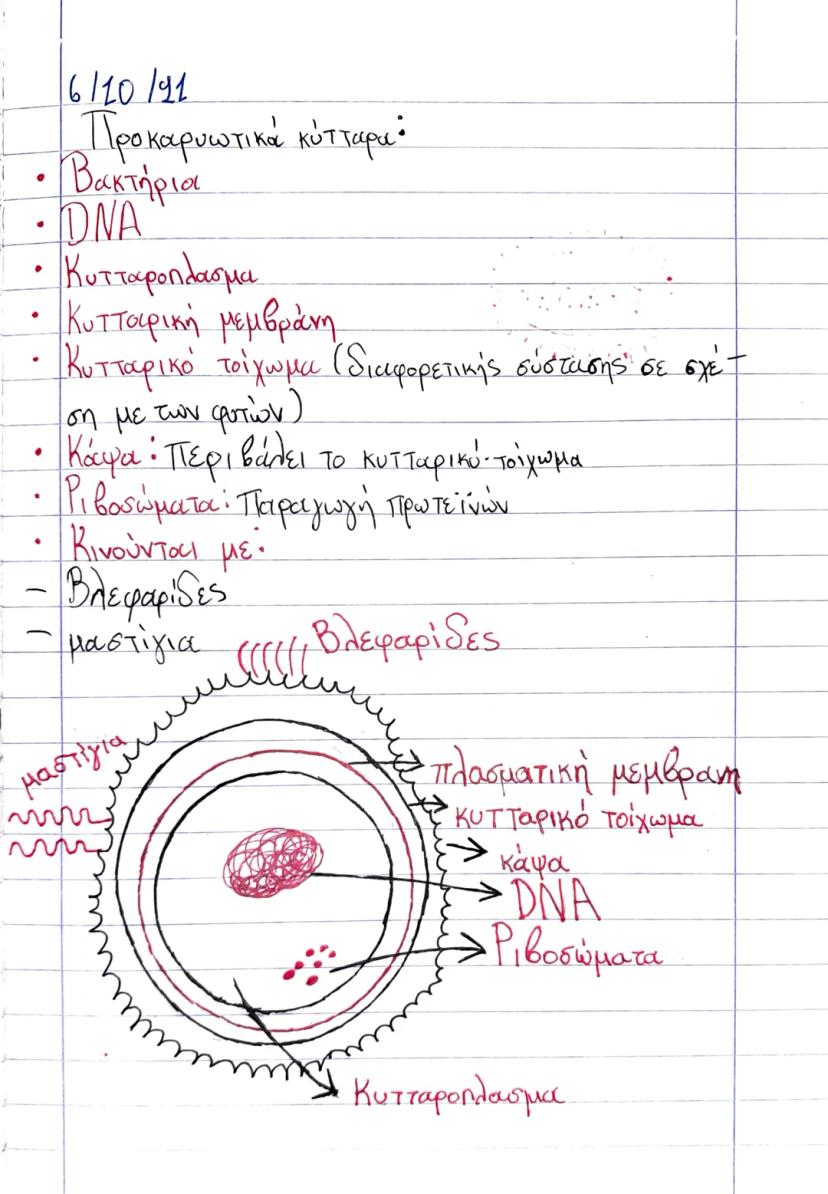 6/10/21
Προκαρυωτικά κύτταρα:
• Βακτήρια
• DNA
• Κυτταροπλασμα
• Κυτταρική μεμβράνη
• Κυτταρικό τοίχωμα (διαφορετικής σύστασης σε σχέ-
ση με των φυτών)
• Κάψα: Περιβάλει το κυτταρικό τοίχωμα
• Ριβοσώματα: Παραγωγή πρωτεϊνών
• Κινούνται με:
– Βλεφαρίδες
– μαστίγια
Βλεφαρίδες
μαστίγια
πλασματική μεμβρανη
κυτταρικό τοίχωμα
κάψα
DNA
Ριβοσώματα
Κυτταροπλασμα